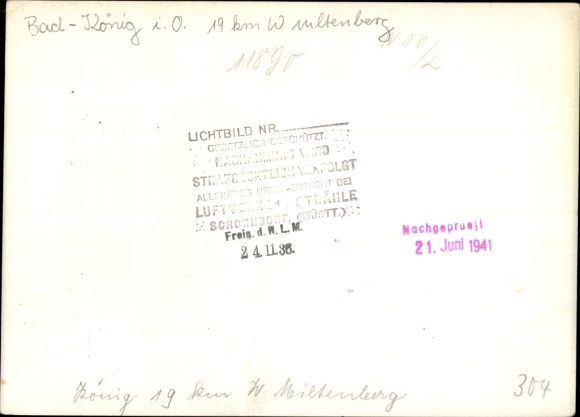 Bad-König i. O. 19 km W Miltenberg
11890
LICHTBILD NR.
GESETZLICH GESCHÜTZT.
NACHAHMUNG WIRD
STRAFRECHTLICH VERFOLGT
ALLEINIGES URHEBERRECHT BEI
LUFTVERKEHR STRÄHLE
SCHORNDORF (WÜRTT.)
Freig. d. R. L. M.
24.11.36.
Nachgeprueft
21. Juni 1941
König 19 km W Miltenberg
304